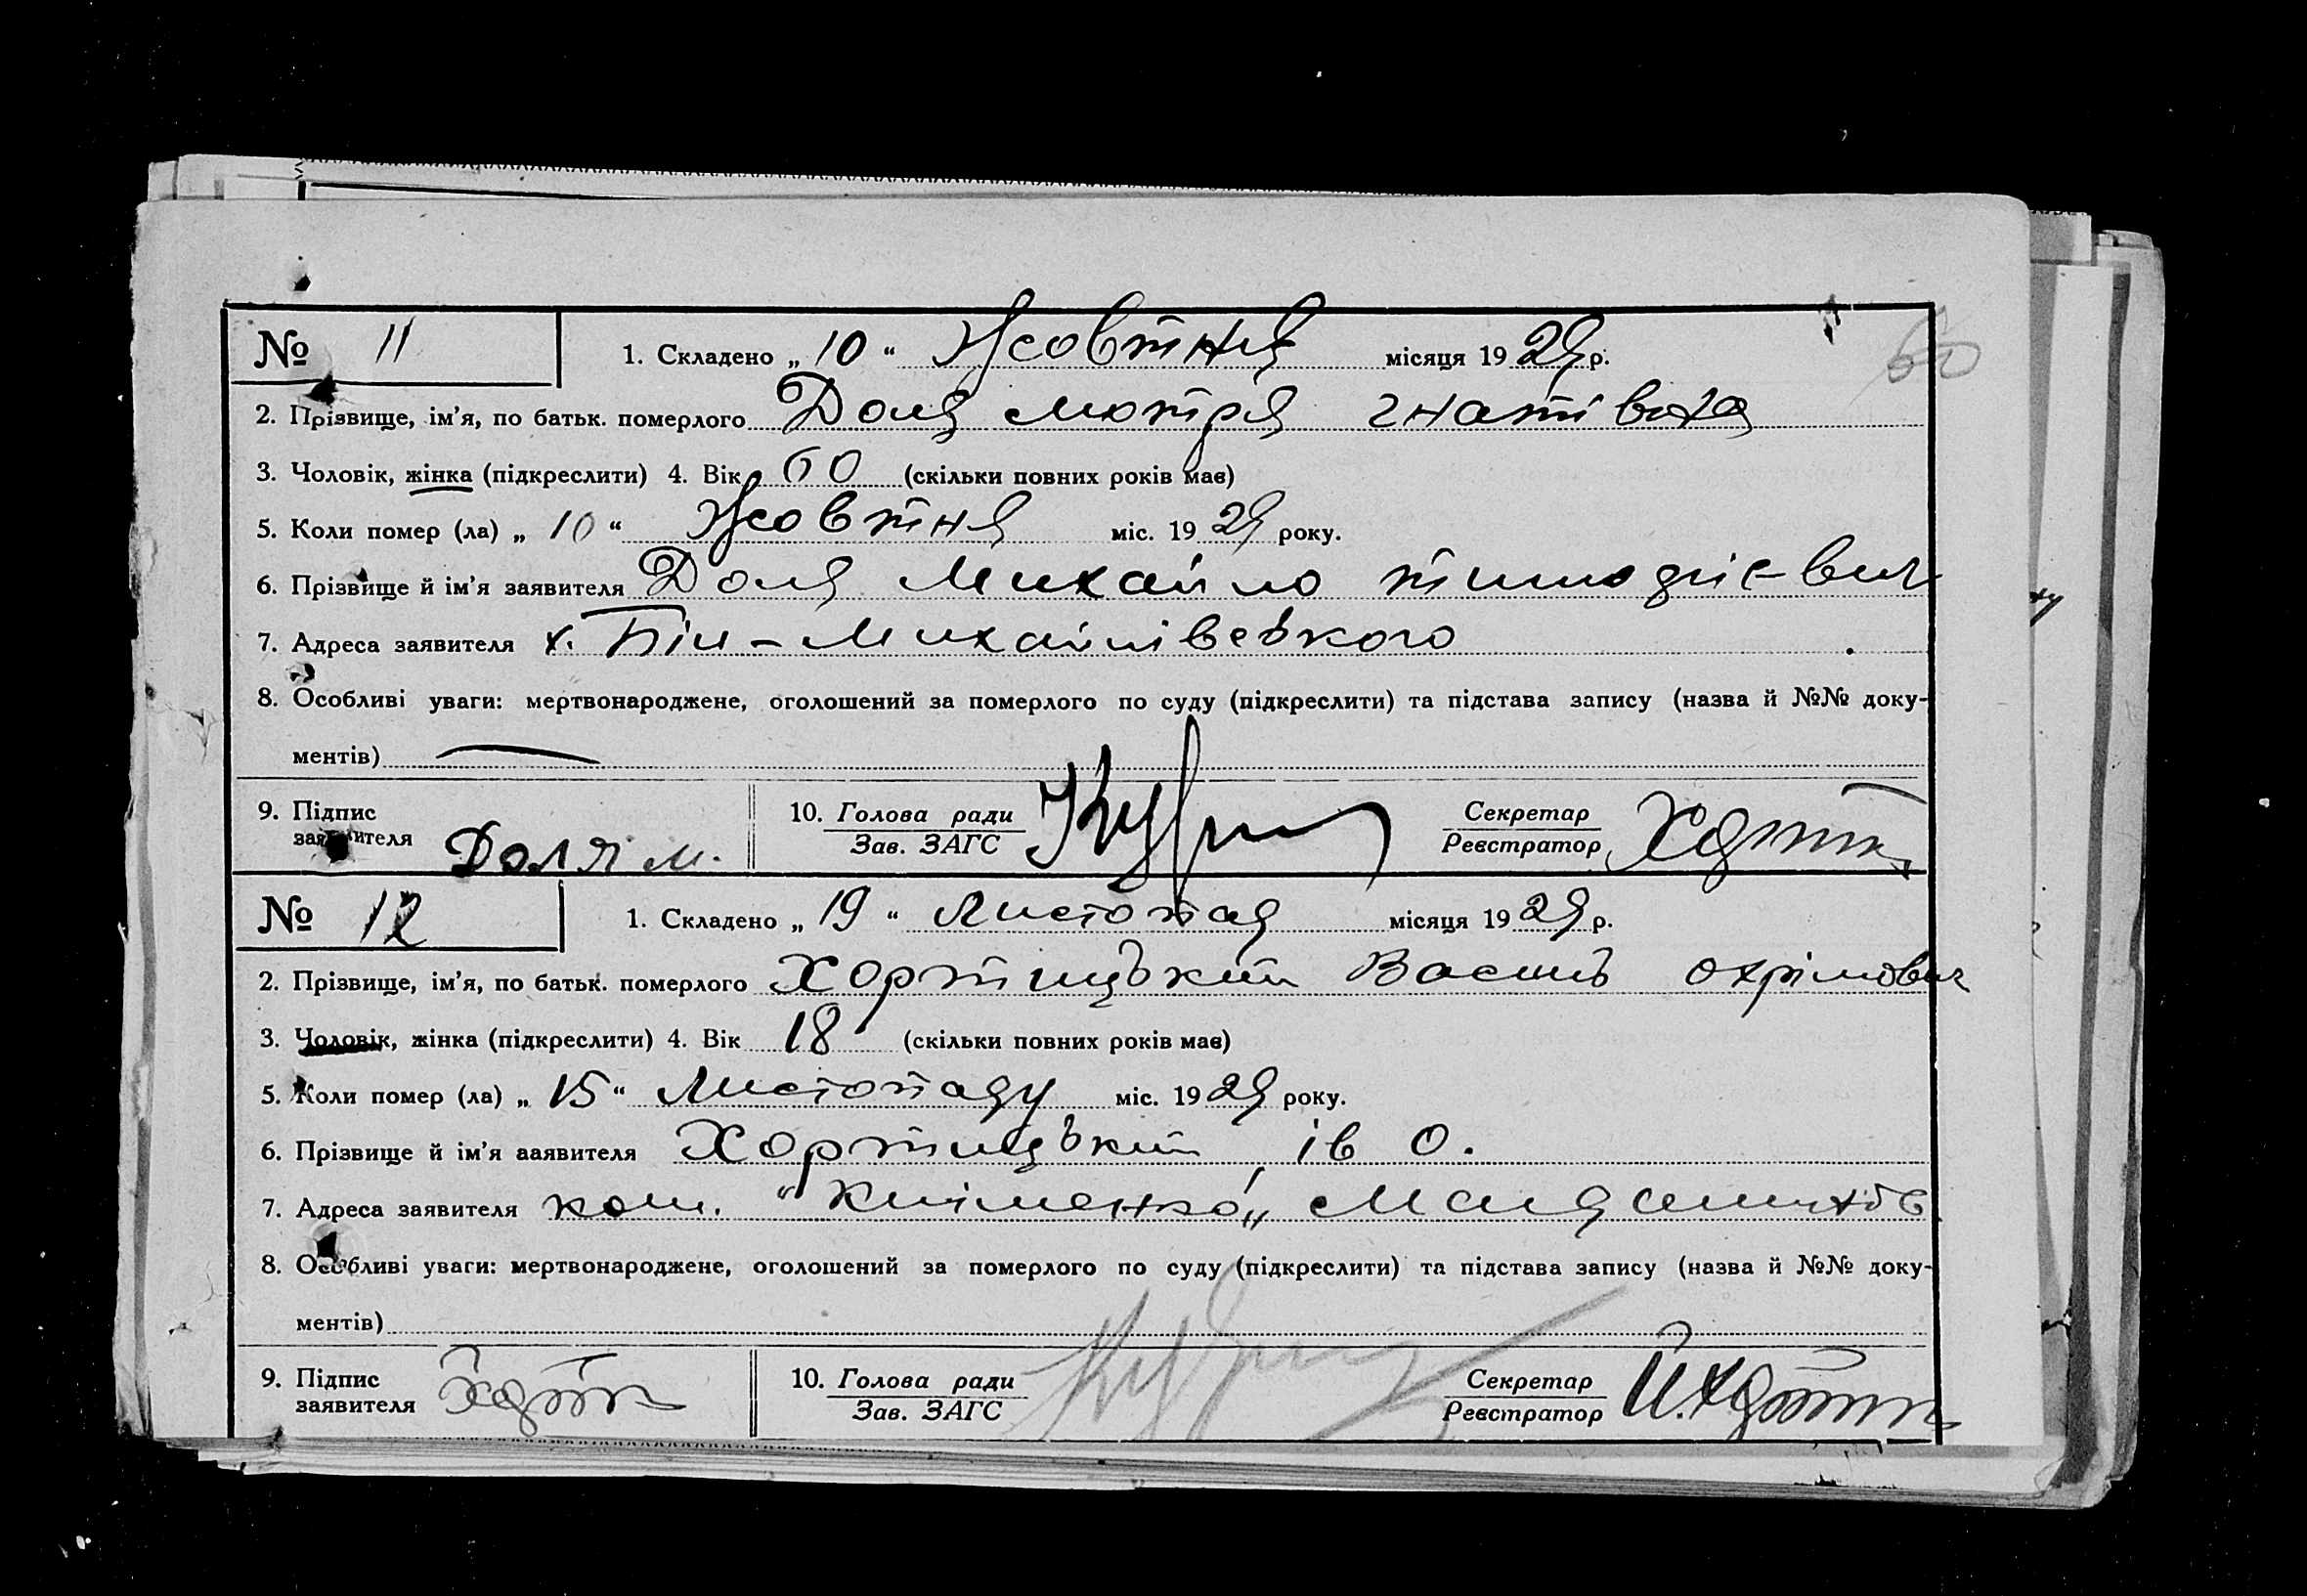 № 11 1. Складено „ 10 “ Жовтня місяця 1929 р.
60
2. Прізвище, ім’я, по батьк. померлого Доля Мотря Гнатівна
3. Чоловік, жінка (підкреслити) 4. Вік 60 (скільки повних років мав)
5. Коли помер (ла) „ 10 “ Жовтня міс. 1929 року.
6. Прізвище й ім’я заявителя Доля Михайло
7. Адреса заявителя х. Біл-Михайлівського
8. Особливі уваги: мертвонароджене, оголошений за померлого по суду (підкреслити) та підстава запису (назва й №№ доку-
ментів)
9. Підпис заявителя Доля М.
10. Голова ради
Зав. ЗАГС
Секретар
Реєстратор
№ 12 1. Складено „ 19 “ Листопад місяця 1929 р.
2. Прізвище, ім’я, по батьк. померлого Хортицький Василь Охрімович
3. Чоловік, жінка (підкреслити) 4. Вік 18 (скільки повних років мав)
5. Коли помер (ла) „ 15 “ Листопаду міс. 1929 року.
6. Прізвище й ім’я заявителя Хортицький ів О.
7. Адреса заявителя ком.
8. Особливі уваги: мертвонароджене, оголошений за померлого по суду (підкреслити) та підстава запису (назва й №№ доку-
ментів)
9. Підпис
заявителя
10. Голова ради
Зав. ЗАГС
Секретар
Реєстратор